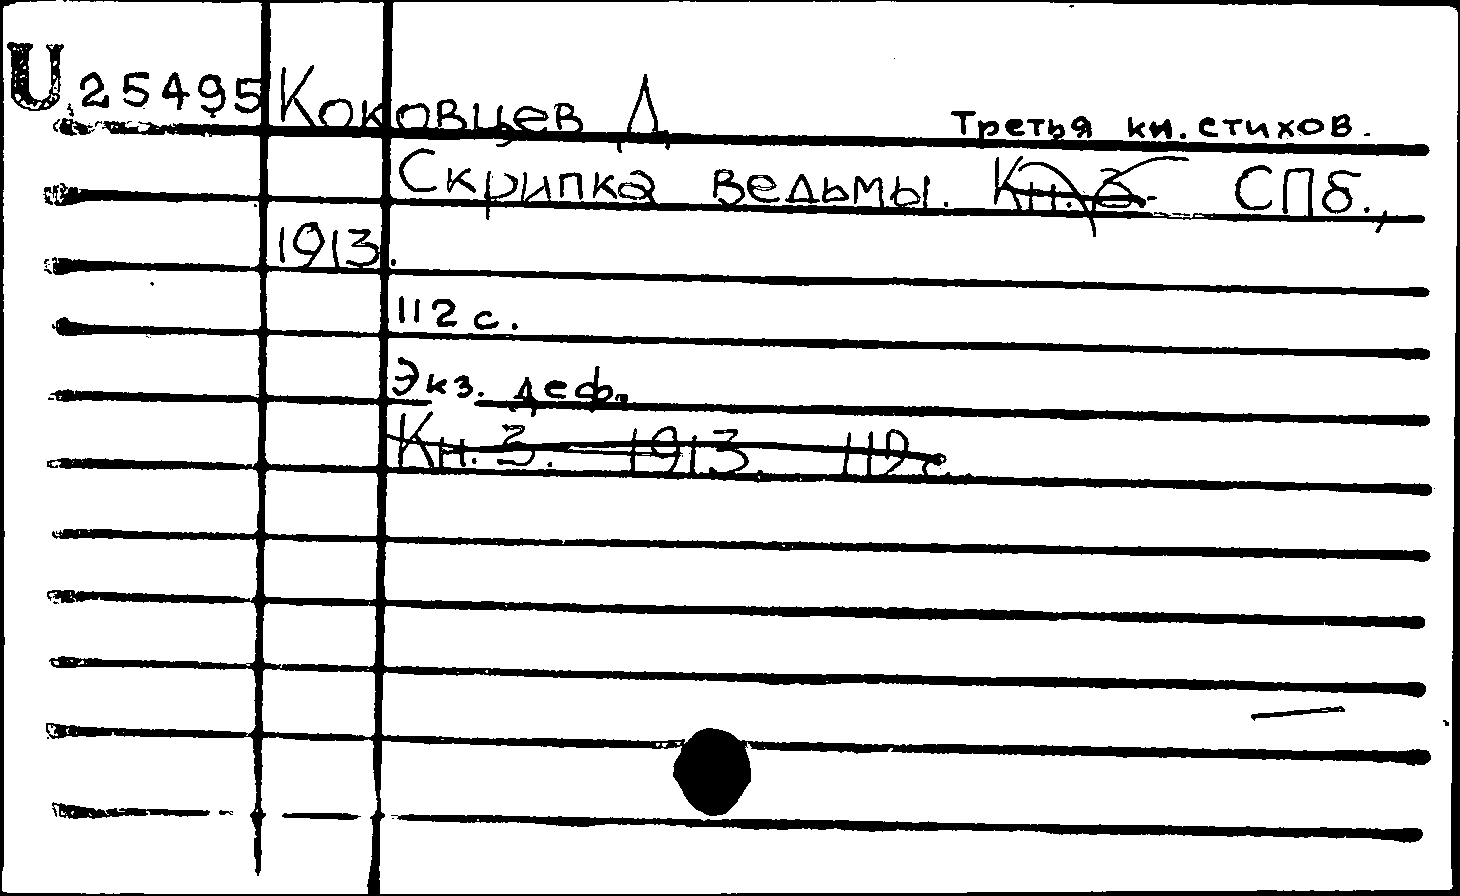 U 25495 Коковцев Д. Третья кн. стихов.
Скрипка ведьмы. Кн. 3 СПб.,
1913.
112 с.
Экз. деф.
Кн. 3. 1913. 112 с.